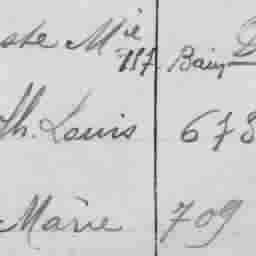 ste Mie 117 Bain D
Th. Louis 678
Marie 709